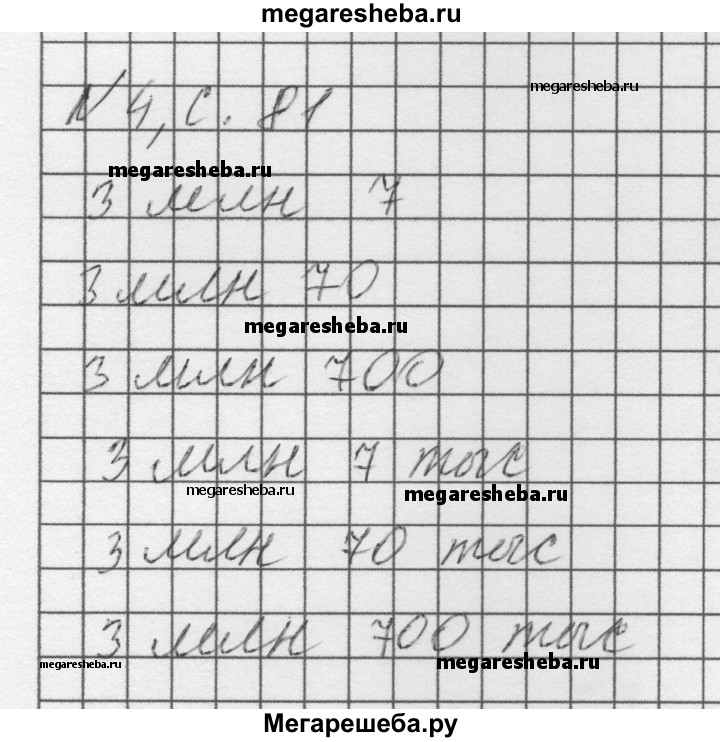 megaresheba.ru
megaresheba.ru
№ 4, с. 81
megaresheba.ru
3 млн 7
3 млн 70
megaresheba.ru
3 млн 700
3 млн 7 тыс
megaresheba.ru
megaresheba.ru
3 млн 70 тыс
3 млн 700 тыс
megaresheba.ru
megaresheba.ru
Мегарешеба.ру